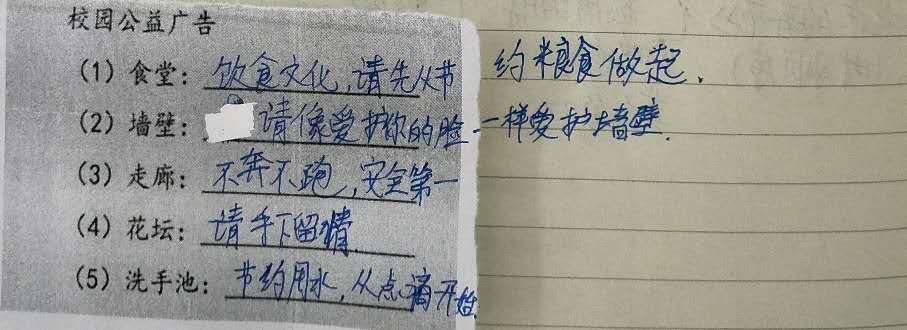 校园公益广告
(1) 食堂：饮食文化，请先从节约粮食做起．
(2) 墙壁：请像爱护你的脸一样爱护墙壁．
(3) 走廊：不奔不跑，安全第一
(4) 花坛：请手下留情
(5) 洗手池：节约用水，从点滴开始．